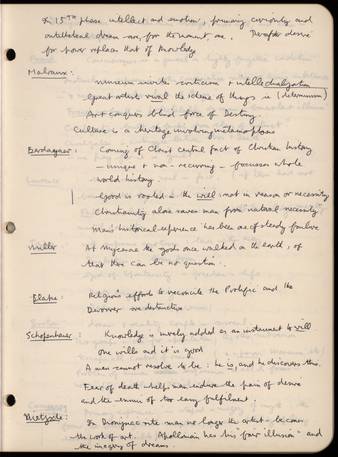 & 15TH phase intellect and emotion, primary curiosity and
antithetical dream are for the moment one. Therefore desire
for power replaces that of knowledge
Malraux: museum invites criticism + intellectualization
great artists rival the scheme of things is (determinism)
Art conquers blind force of Destiny
Culture is a heritage involving metamorphosis
Berdayaev: Coming of Christ central fact of Christian history
— unique & non-recurring — focuses on whole
world history
Good is rooted in the will: not in reason or necessity
Christianity alone saves man from natural necessity
Man's historical experience has been one of steady failure
Miller At Mycenae the gods once walked on the earth, of
that there can be no question.
Blake: Religion's efforts to reconcile the Prolific and the
Devourer are destructive
Schopenhauer: Knowledge is merely added as an instrument to will
One wills and it is good
A man cannot resolve to be: he is and he discovers this.
Fear of death helps man endure the pain of desire
and the ennui of too easy fulfilment.
Nietzsche: In Dionysiac rite man no longer the artist — becomes
the work of art. Apollonian has his "fair illusion" and
the imagery of dreams.